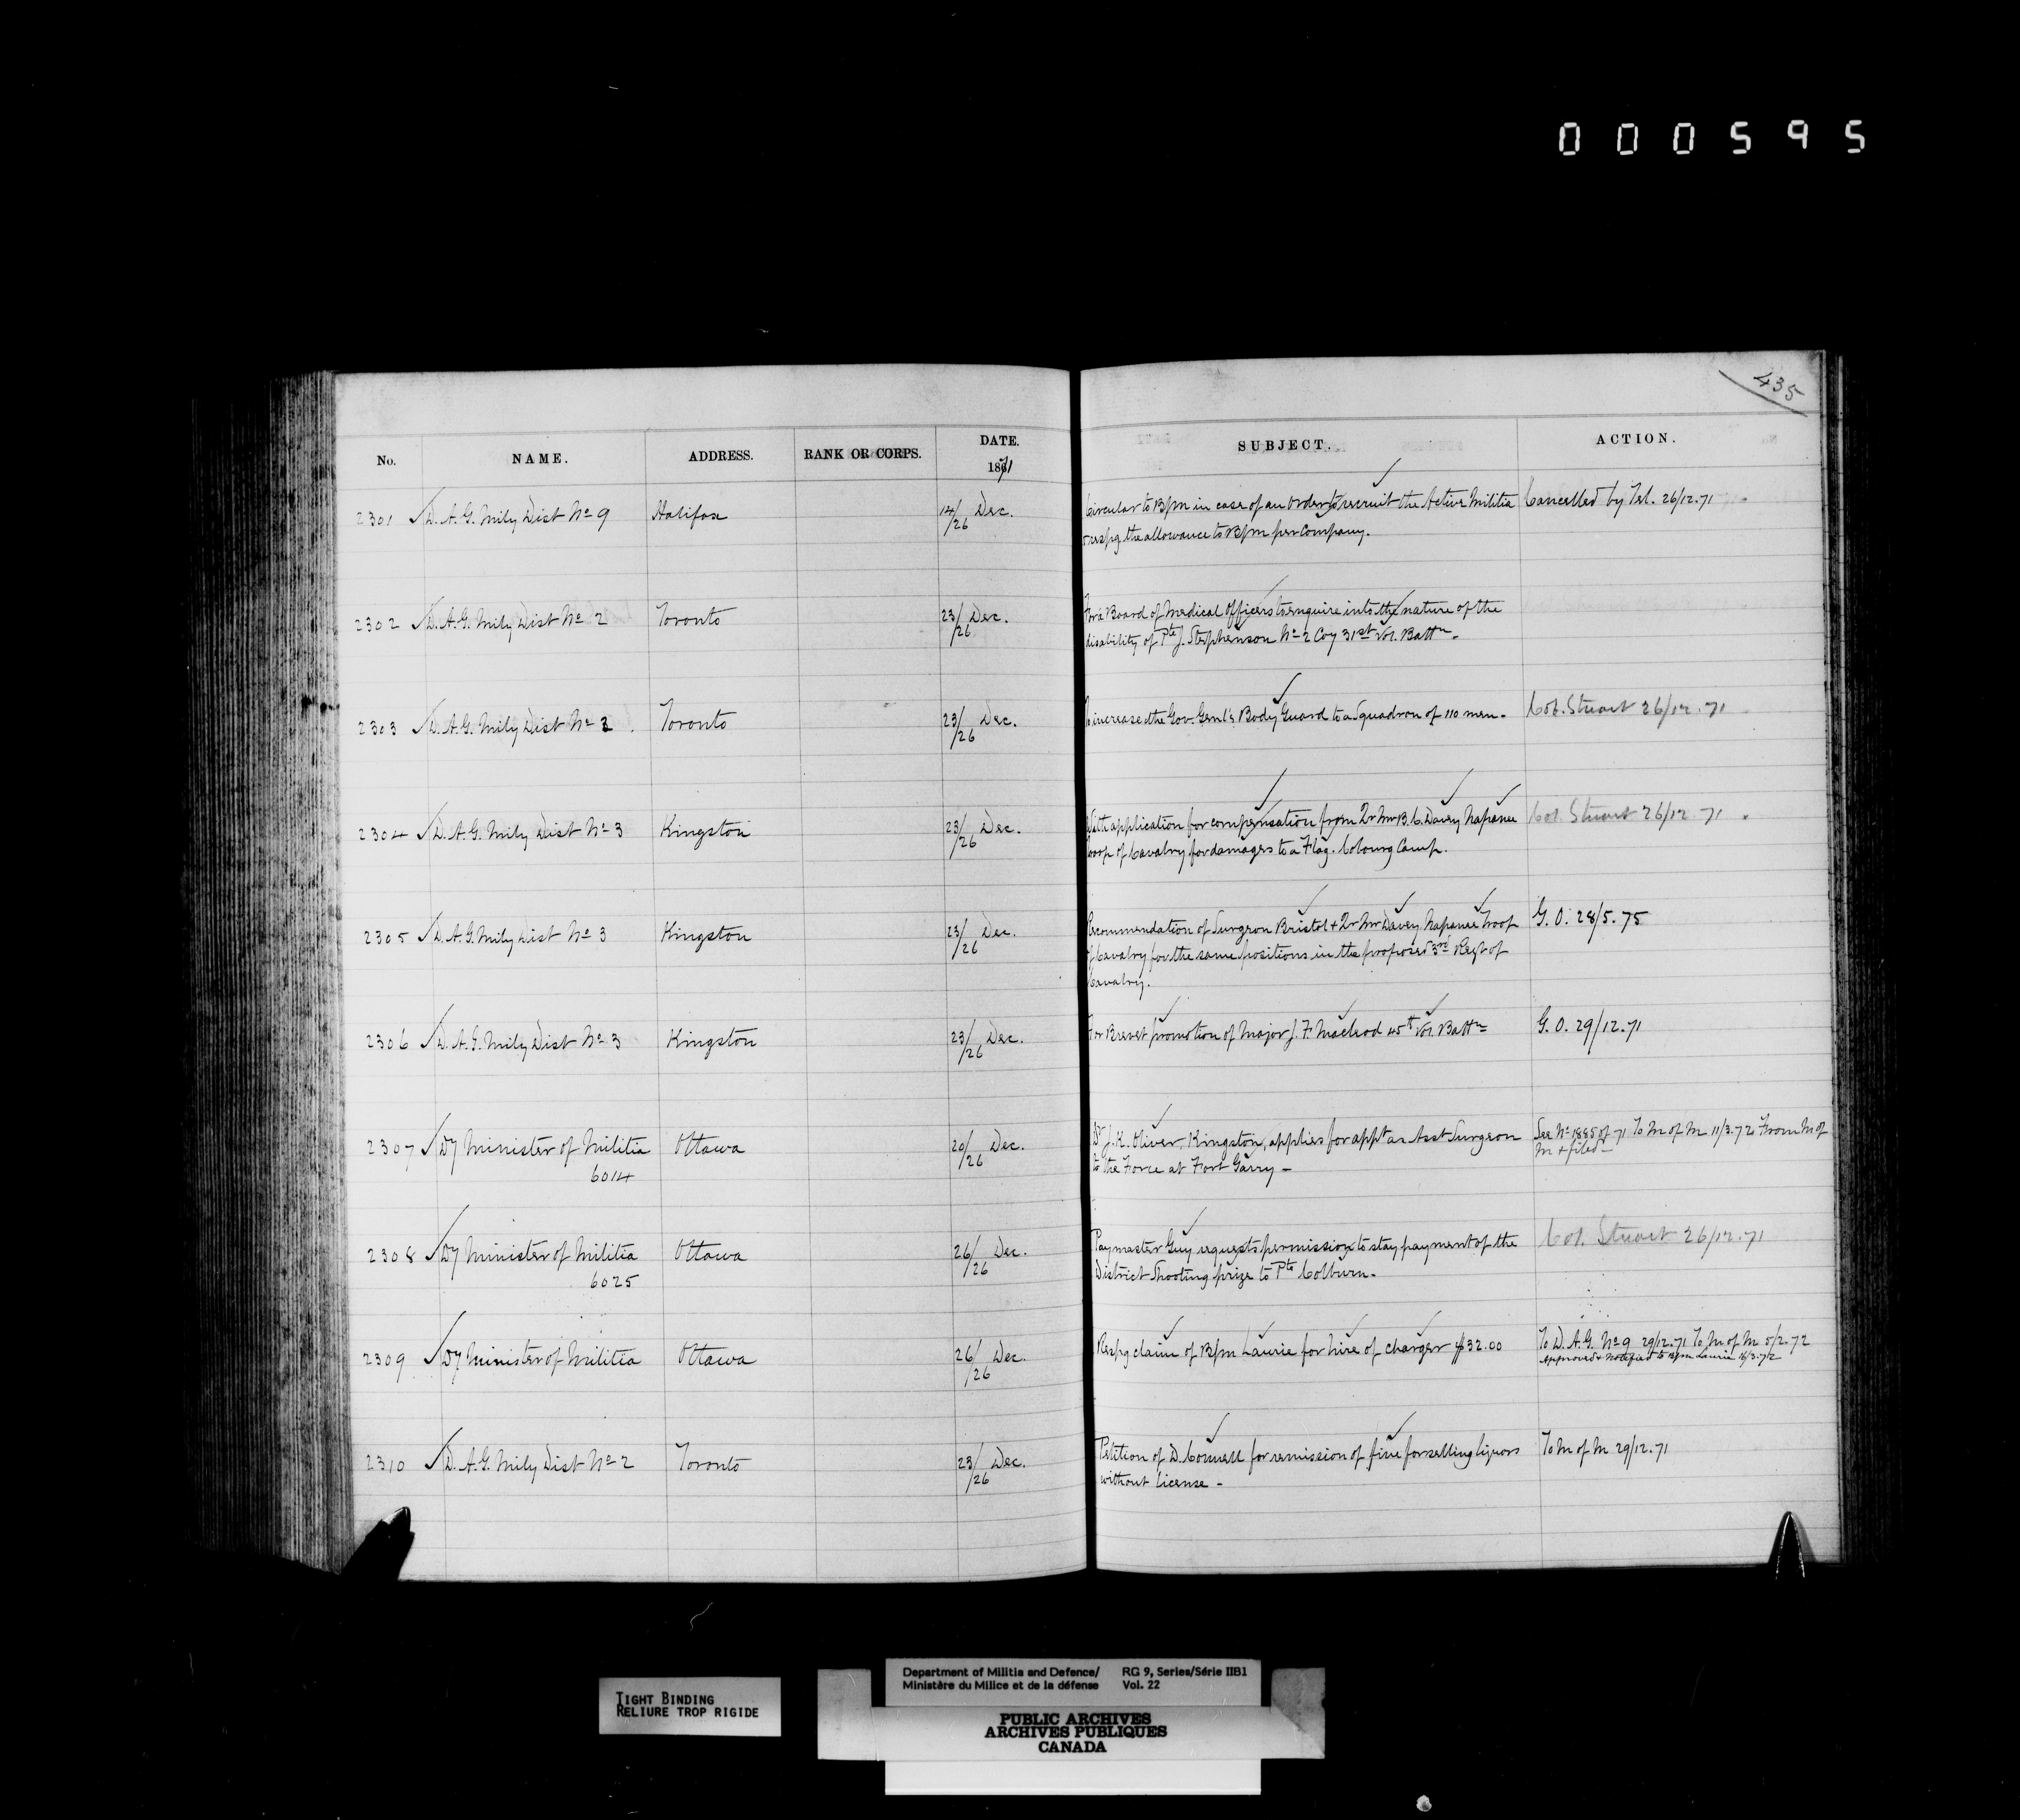 000595
435
No. NAME. ADDRESS. RANK OR CORPS. DATE. 1871 SUBJECT. ACTION.
2301 D. A. G. Mily Dist No 9 Halifax 14/26 Dec. Circular to B/m in case of an order to recruit the Active Militia Cancelled by Tel. 26/12.71
+ respg. the allowance to B/m per Company.
2302 D. A. G. Mily Dist No 2 Toronto 23/26 Dec. For a Board of Medical Officers to enquire into the nature of the
disability of Pte J. Stephenson No 2 Coy 31st Vol. Battn.
2303 D. A. G. Mily Dist No 2 Toronto 23/26 Dec. To increase the Gov. Genl's Body Guard to a Squadron of 110 men. Col. Stuart 26/12.71
2304 D. A. G. Mily Dist No 3 Kingston 23/26 Dec. With application for compensation from Qr Mr B. C. Davey Napanee Col. Stuart 26/12.71
Troop of Cavalry for damages to a Flag. Cobourg Camp.
2305 D. A. G. Mily Dist No 3 Kingston 23/26 Dec. Recommendation of Surgeon Bristol + Qr Mr Davey Napanee Troop G. O. 28/5.75
of Cavalry for the same positions in the proposed 3rd Regt of
Cavalry.
2306 D. A. G. Mily Dist No 3 Kingston 23/26 Dec. For Brevet promotion of Major J. F. Macleod 45th Vol. Battn G. O. 29/12.71
2307 Dy Minister of Militia Ottawa 20/26 Dec. Dr J. K. Oliver, Kingston, applies for appt as Asst Surgeon See No 1885 of 71 To M of M 11/3.72 From M of
6014 to the Force at Fort Garry - M + filed -
2308 Dy Minister of Militia Ottawa 26/26 Dec. Paymaster Guy requests permission to stay payment of the Col. Stuart 26/12.71
6025 District Shooting prize to Pte Colburn.
2309 Dy Minister of Militia Ottawa 26/26 Dec. Respg claim of B/m Laurie for hire of charger $32.00 To D. A. G. No 9 29/12.71 To M of M 5/2.72
approved + notified to B/m Laurie
2310 D. A. G. Mily Dist No 2 Toronto 23/26 Dec. Petition of D. Connell for remission of fine for selling liquors To M of M 29/12.71
without license -
TIGHT BINDING
RELIURE TROP RIGIDE
Department of Militia and Defence/ RG 9, Series/Série IIB1
Ministère du Milice et de la défense Vol. 22
PUBLIC ARCHIVES
ARCHIVES PUBLIQUES
CANADA